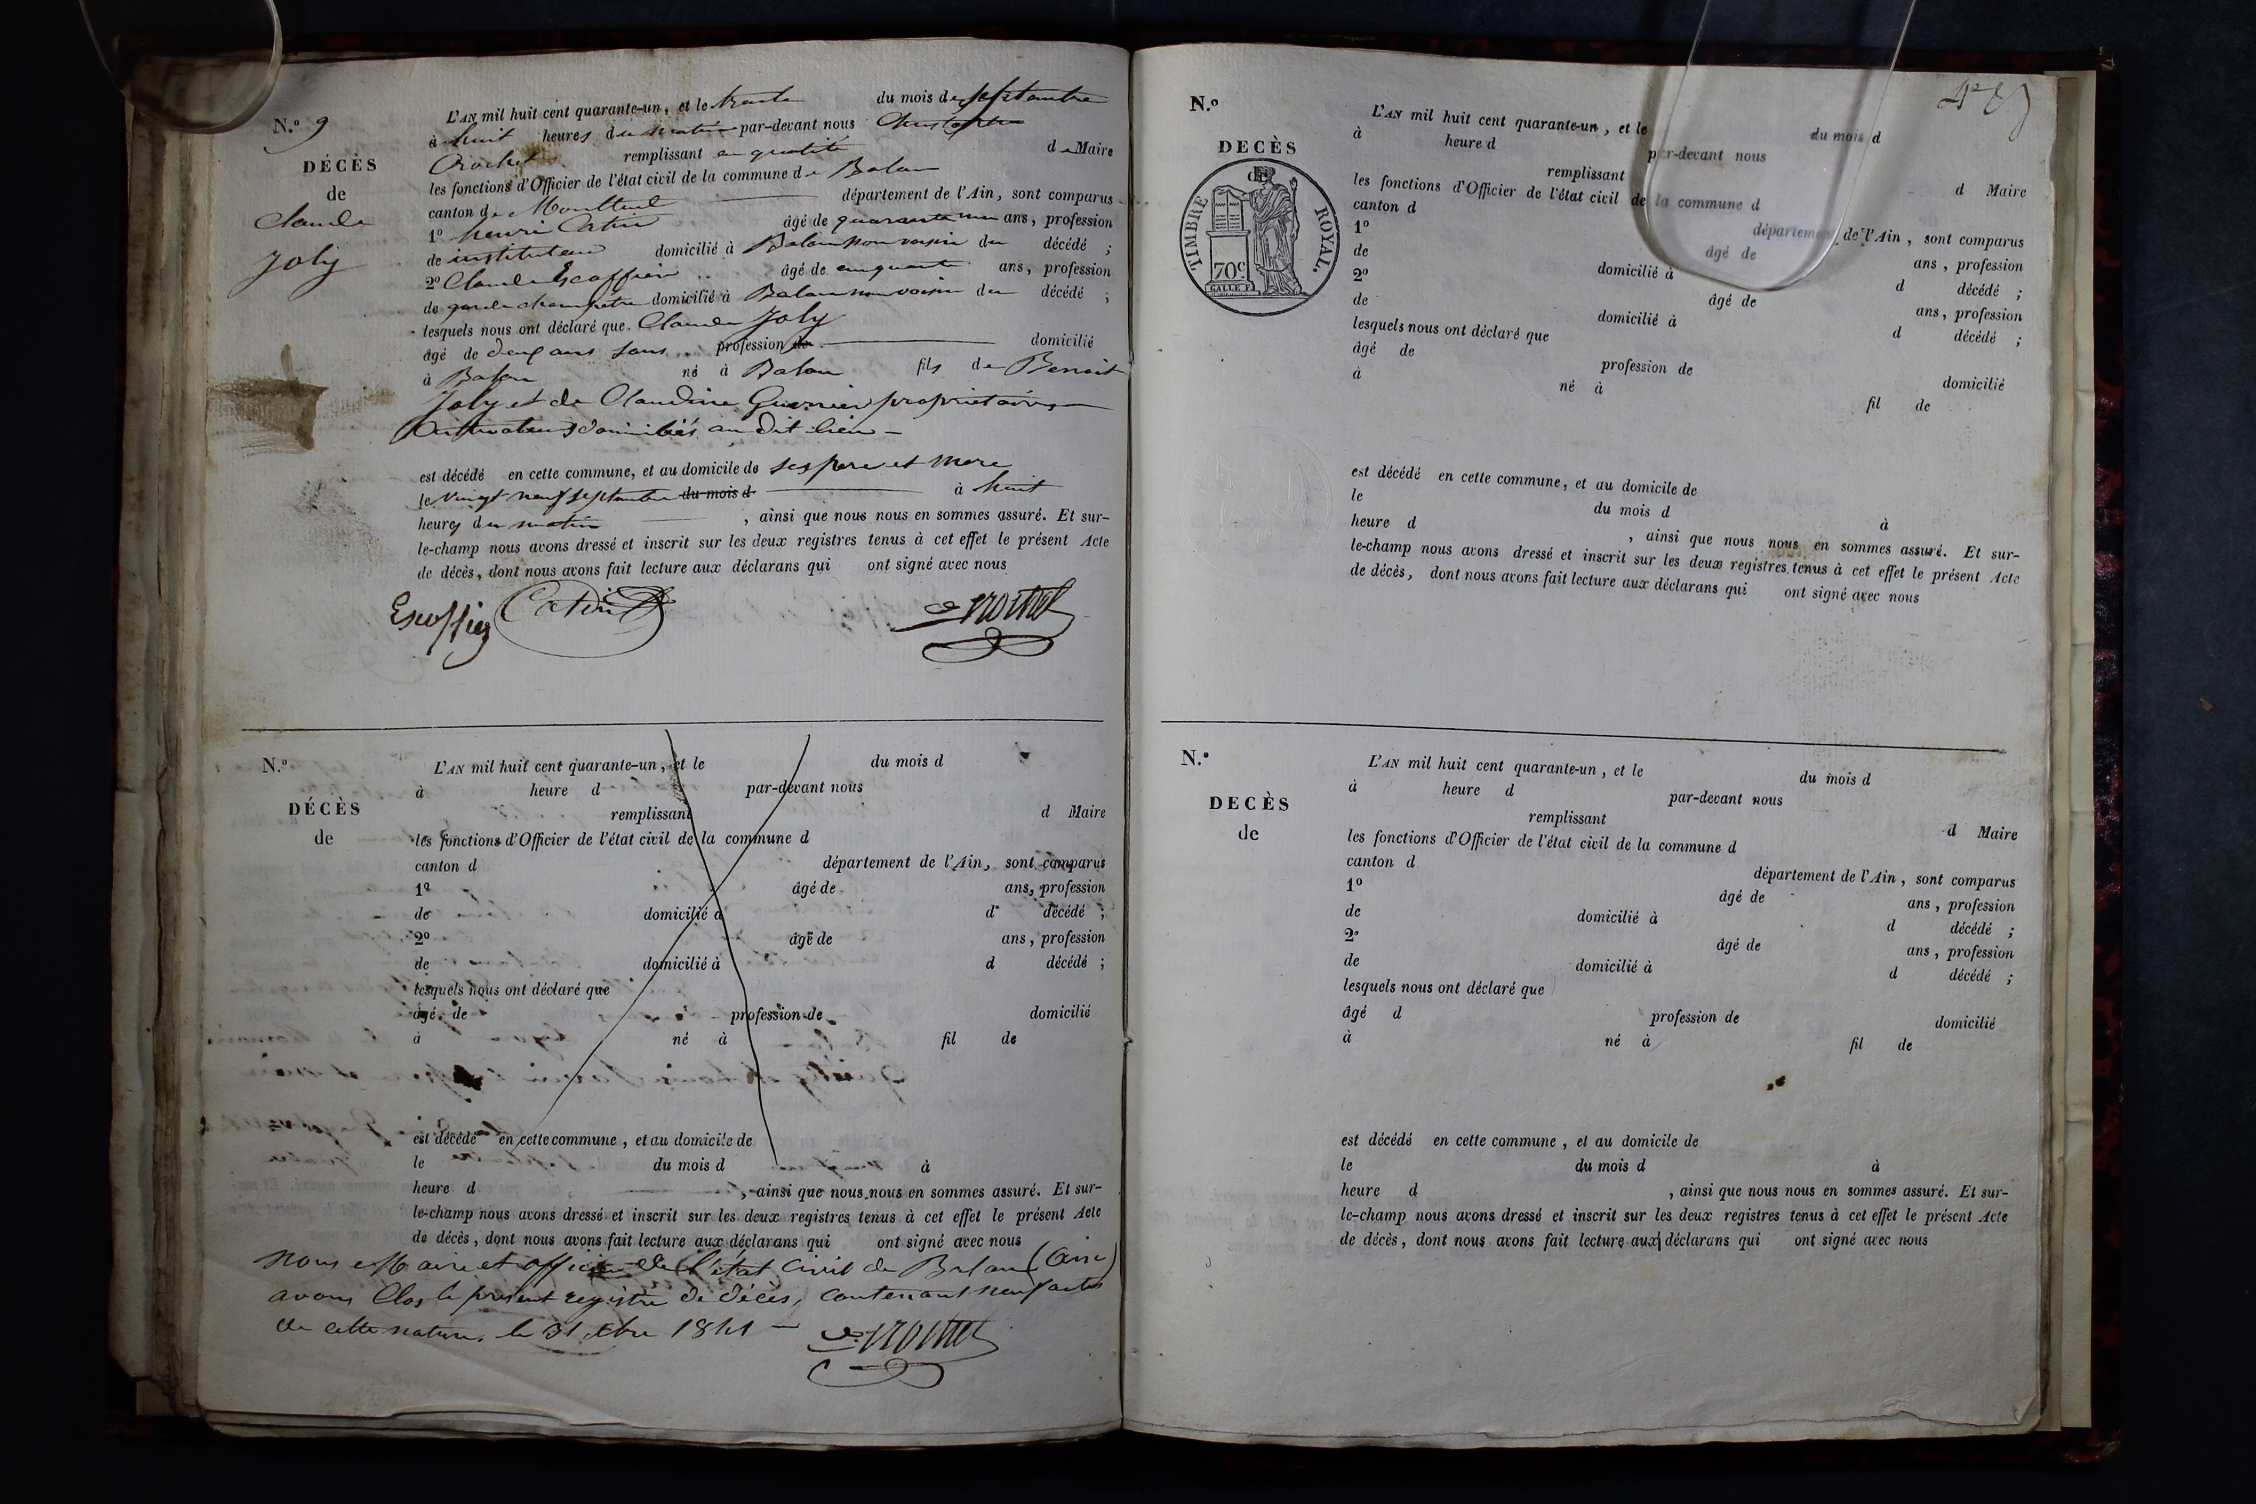 N.º 9
DÉCÈS
de
Claude
Joly
L'AN mil huit cent quarante-un, et le trente du mois de septembre
à huit heures du matin par-devant nous Christophe
Crochet remplissant en qualité de Maire
les fonctions d'Officier de l'état civil de la commune de Balan
canton de Montluel département de l'Ain, sont comparus
1º henri Catin âgé de quarante un ans, profession
de instituteur domicilié à Balan non voisin du décédé ;
2º Claude Escoffier âgé de cinquante ans, profession
de garde champêtre domicilié à Balan non voisin du décédé ;
lesquels nous ont déclaré que Claude Joly
âgé de deux ans sans profession de domicilié
à Balan né à Balan fils de Benoit
Joly et de Claudine Guerrier propriétaires
Cultivateurs domiciliés au dit lieu
est décédé en cette commune, et au domicile de ses pere et mere
le vingt neuf septembre du mois d à huit
heures du matin , ainsi que nous nous en sommes assuré. Et sur-
le-champ nous avons dressé et inscrit sur les deux registres tenus à cet effet le présent Acte
de décès, dont nous avons fait lecture aux déclarans qui ont signé avec nous
Escoffier Catin Crochet
N.º
DÉCÈS
de
L'AN mil huit cent quarante-un, et le du mois d
à heure d par-devant nous
remplissant d Maire
les fonctions d'Officier de l'état civil de la commune d
canton d département de l'Ain, sont comparus
1º âgé de ans, profession
de domicilié à d décédé ;
2º âgé de ans, profession
de domicilié à d décédé ;
lesquels nous ont déclaré que
âgé de profession de domicilié
à né à fil de
est décédé en cette commune, et au domicile de
le du mois d à
heure d , ainsi que nous nous en sommes assuré. Et sur-
le-champ nous avons dressé et inscrit sur les deux registres tenus à cet effet le présent Acte
de décès, dont nous avons fait lecture aux déclarans qui ont signé avec nous
Nous Maire et officier de l'état Civil de Balan (Ain)
avons Clos le présent registre de décès, contenant neuf actes
de cette nature, le 31 Xbre 1841
Crochet
N.º
DECÈS
de
TIMBRE ROYAL.
70c
L'AN mil huit cent quarante-un, et le du mois d
à heure d par-devant nous
remplissant d Maire
les fonctions d'Officier de l'état civil de la commune d
canton d département de l'Ain, sont comparus
1º âgé de ans, profession
de domicilié à d décédé ;
2º âgé de ans, profession
de domicilié à d décédé ;
lesquels nous ont déclaré que
âgé de profession de domicilié
à né à fil de
est décédé en cette commune, et au domicile de
le du mois d à
heure d , ainsi que nous nous en sommes assuré. Et sur-
le-champ nous avons dressé et inscrit sur les deux registres tenus à cet effet le présent Acte
de décès, dont nous avons fait lecture aux déclarans qui ont signé avec nous
N.º
DECÈS
de
L'AN mil huit cent quarante-un, et le du mois d
à heure d par-devant nous
remplissant d Maire
les fonctions d'Officier de l'état civil de la commune d
canton d département de l'Ain, sont comparus
1º âgé de ans, profession
de domicilié à d décédé ;
2º âgé de ans, profession
de domicilié à d décédé ;
lesquels nous ont déclaré que
âgé d profession de domicilié
à né à fil de
est décédé en cette commune, et au domicile de
le du mois d à
heure d , ainsi que nous nous en sommes assuré. Et sur-
le-champ nous avons dressé et inscrit sur les deux registres tenus à cet effet le présent Acte
de décès, dont nous avons fait lecture aux déclarans qui ont signé avec nous